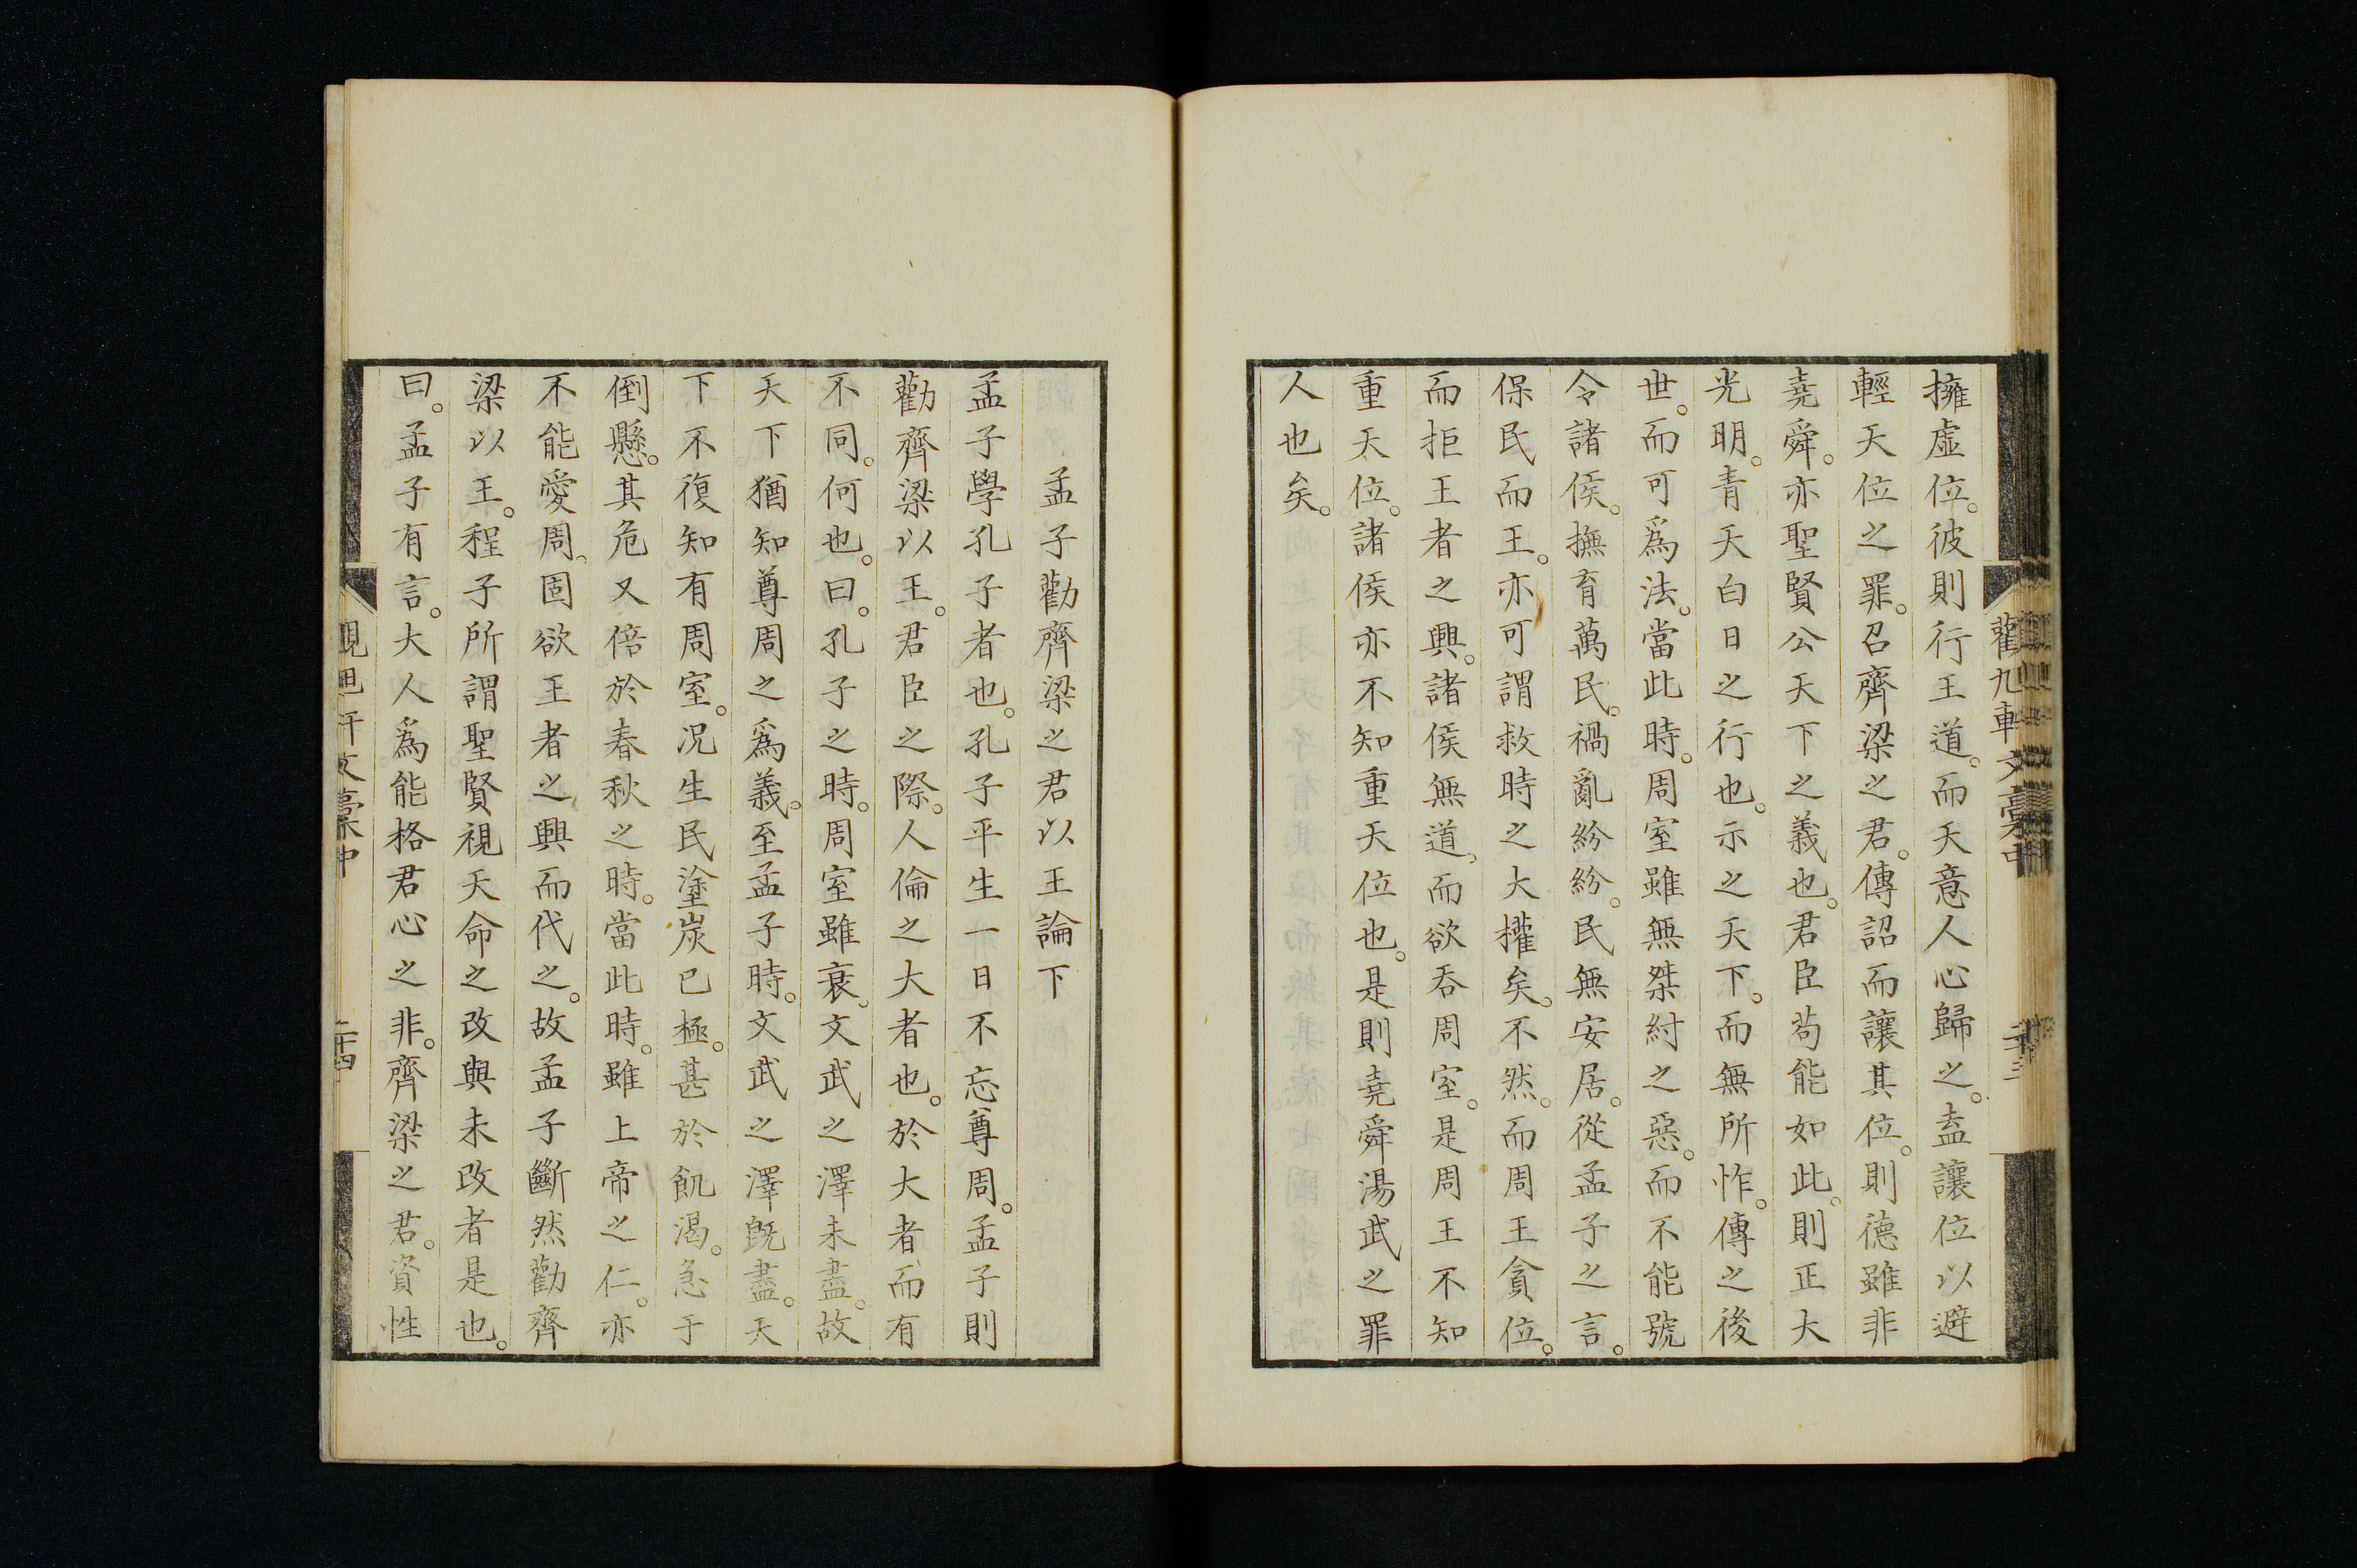 擁虛位。彼則行王道。而天意人心歸之。盍讓位以避
輕天位之罪。召齊梁之君。傳詔而讓其位。則德雖非
堯舜。亦聖賢公天下之義也。君臣苟能如此。則正大
光明。青天白日之行也。示之天下。而無所怍。傳之後
世。而可爲法。當此時。周室雖無桀紂之惡。而不能號
令諸侯。撫育萬民。禍亂紛紛。民無安居。從孟子之言。
保民而王。亦可謂救時之大權矣。不然。而周王貪位。
而拒王者之興。諸侯無道。而欲吞周室。是周王不知
重天位。諸侯亦不知重天位也。是則堯舜湯武之罪
人也矣。
孟子勸齊梁之君以王論下
孟子學孔子者也。孔子平生一日不忘尊周。孟子則
勸齊梁以王。君臣之際。人倫之大者也。於大者而有
不同。何也。曰。孔子之時。周室雖衰。文武之澤未盡。故
天下猶知尊周之爲義。至孟子時。文武之澤既盡。天
下不復知有周室。況生民塗炭已極。甚於飢渴。急于
倒懸。其危又倍於春秋之時。當此時。雖上帝之仁。亦
不能愛周。固欲王者之興而代之。故孟子斷然勸齊
梁以王。程子所謂聖賢視天命之改與未改者是也。
曰。孟子有言。大人爲能格君心之非。齊梁之君。資性
文藁中
二十四